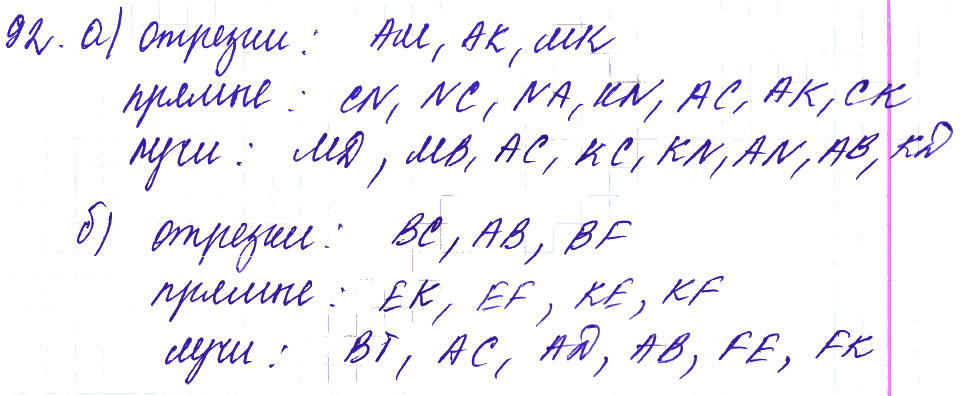 92. а) отрезки: AM, AK, MK
прямые: CN, NC, NA, KN, AC, AK, CK
лучи: MD, MB, AC, KC, KN, AN, AB, KD
б) отрезки: BC, AB, BF
прямые: EK, EF, KE, KF
лучи: BT, AC, AD, AB, FE, FK